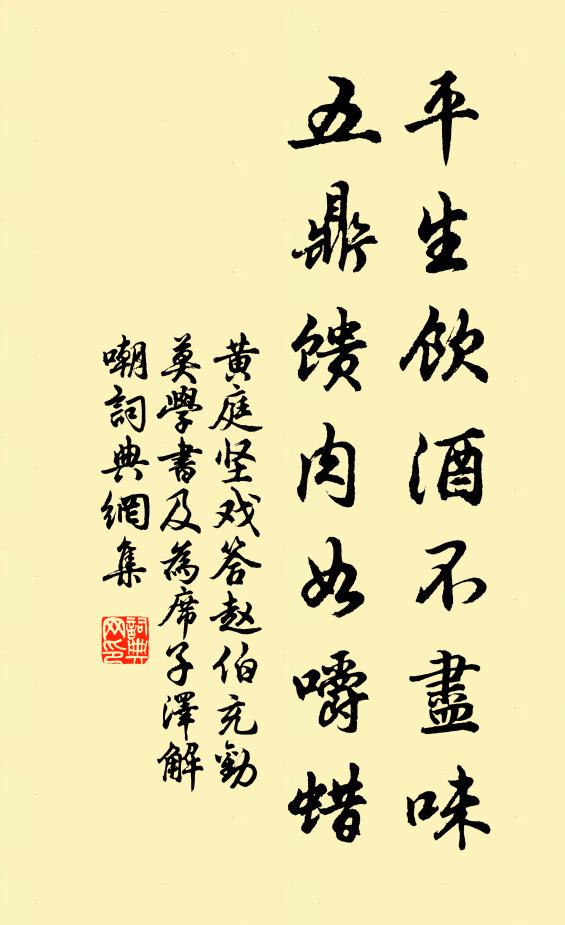 平生飲酒不盡味
五鼎馈肉如嚼蜡
黄庭坚戏答赵伯充勸
莫學書及為席子澤解
嘲詞典網集
詞典
网印